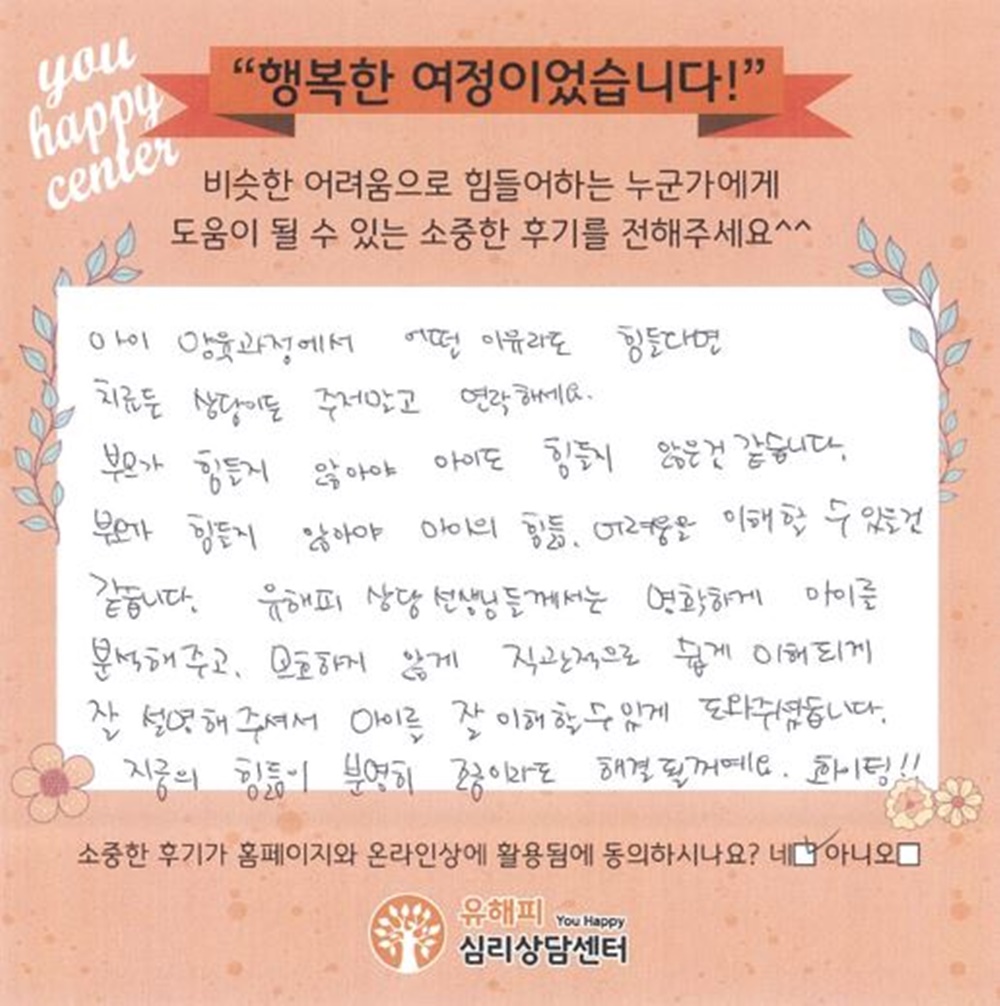 you
happy
center
“행복한 여정이었습니다!”
비슷한 어려움으로 힘들어하는 누군가에게
도움이 될 수 있는 소중한 후기를 전해주세요^^
아이 양육과정에서 어떤 이유라도 힘들다면
치료든 상담이든 주저말고 연락하세요.
부모가 힘들지 않아야 아이도 힘들지 않은것 같습니다.
부모가 힘들지 않아야 아이의 힘듦, 어려움을 이해할 수 있는것
같습니다. 유해피 상담선생님들께서는 명확하게 아이를
분석해주고, 모호하지 않게 직관적으로 쉽게 이해되게
잘 설명해주셔서 아이를 잘 이해할수있게 도와주셨습니다.
지금의 힘듦이 분명히 조금이라도 해결될꺼예요. 화이팅!!
소중한 후기가 홈페이지와 온라인상에 활용됨에 동의하시나요? 네 아니오
유해피 You Happy
심리상담센터